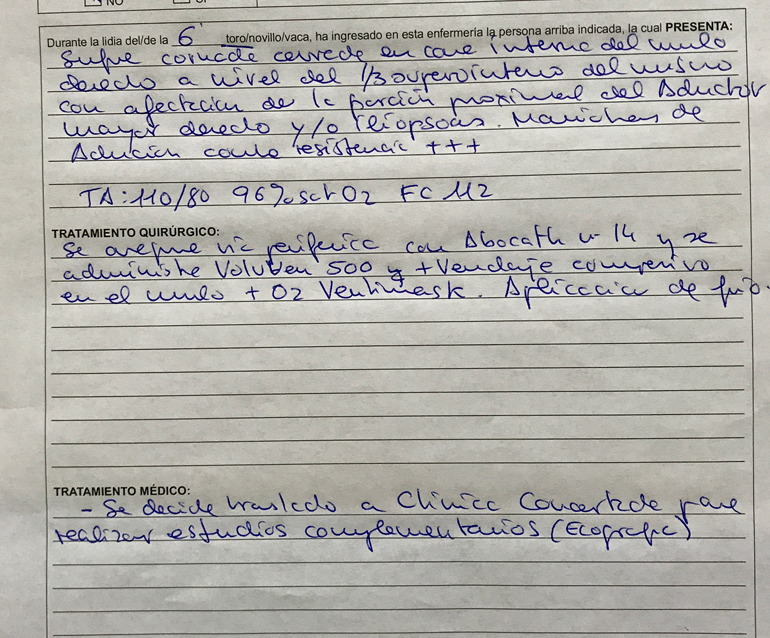 NO
Durante la lidia del/de la 6º toro/novillo/vaca, ha ingresado en esta enfermería la persona arriba indicada, la cual PRESENTA:
Sufre cornada cerrada en cara interna del muslo
derecho a nivel del 1/3 superointerno del mismo
con afectación de la porción proximal del Aductor
mayor derecho y/o iliopsoas. Maniobras de
Aducción contra resistencia +++
TA: 110/80 96% sat O2 FC 112
TRATAMIENTO QUIRÚRGICO:
Se asegura vía periférica con Abocath nº 14 y se
administra Voluven 500 + Vendaje compresivo
en el muslo + O2 Ventimask. Aplicación de frío.
TRATAMIENTO MÉDICO:
- Se decide traslado a Clínica Concertada para
realizar estudios complementarios (Ecografía)